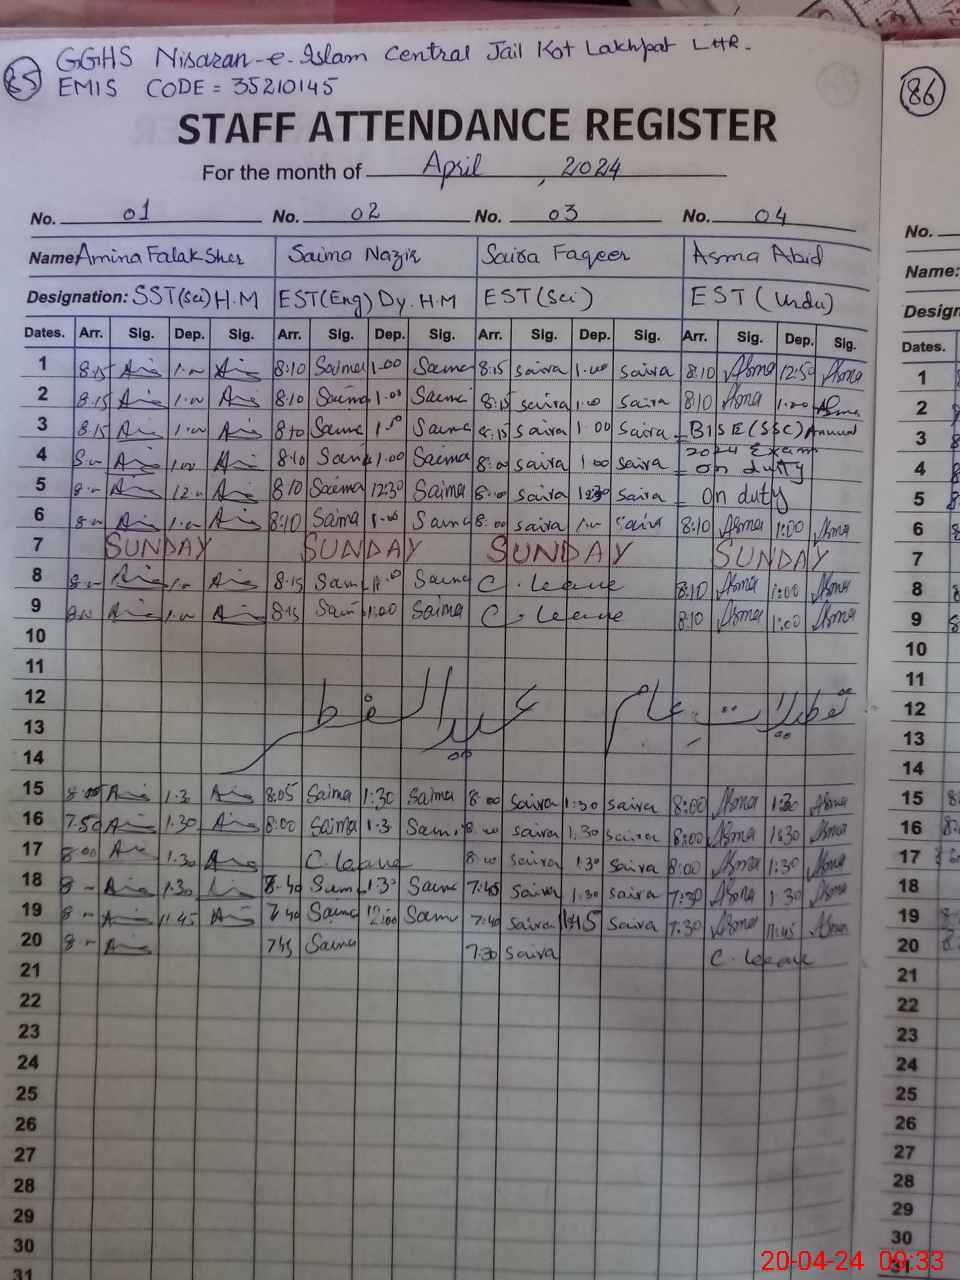 85
GGHS Nisaran-e-Islam Central Jail Kot Lakhpat LHR.
EMIS CODE = 35210145
86
STAFF ATTENDANCE REGISTER
For the month of April, 2024
No. 01 No. 02 No. 03 No. 04
No.
Name Amina Falak Sher Saima Nazir Saira Faqeer Asma Abid
Name:
Designation: SST(Sci) H.M EST(Eng) Dy. H.M EST(Sci) EST (Urdu)
Dates. Arr. Sig. Dep. Sig. Arr. Sig. Dep. Sig. Arr. Sig. Dep. Sig. Arr. Sig. Dep. Sig.
Dates.
1 8:15 8:10 Saima 1.00 Saima 8:15 saira 1.00 saira 8:10 Asma 12:50 Asma
2 8:15 8:10 Saima 1.00 Saima 8:15 saira 1.00 Saira 8:10 Asma Asma
3 8:15 8:10 Saima Saima 8:15 saira 1.00 Saira BISE (SSC) Annual
4 8:10 Saima 1.00 Saima 8:00 saira 1.00 saira 2024 Exam on duty
5 8:10 Saima 12:30 Saima saira 12:30 Saira on duty
6 8:10 Saima 1.00 Saima 8:00 saira Saira 8:10 Asma 1:00 Asma
7 SUNDAY SUNDAY SUNDAY SUNDAY
8 8:15 Saima Saima C. leave 8:10 Asma 1:00 Asma
9 8:10 8:15 Saima 1:00 Saima C. leave 8:10 Asma 1:00 Asma
10
11
12 عید الفطر تعطیلات عام
13
14
15 1.30 8:05 Saima 1:30 Saima 8:00 saira 1:30 saira 8:00 Asma 1:30 Asma
16 7.50 1.30 8:00 Saima 1.3 Saima saira 1:30 saira 8:00 Asma 1:30 Asma
17 8:00 1.30 C. leave saira 1:30 saira 8:00 Asma 1:30 Asma
18 1.30 Saima 1:30 Saima 7:45 saira 1:30 saira 7:30 Asma 1:30 Asma
19 11.45 7:40 Saima 12:00 Saima 7:40 saira 11:45 saira 7:30 Asma 11:45 Asma
20 7:45 Saima 7:30 saira C. leave
21
22
23
24
25
26
27
28
29
30
31
1
2
3
4
5
6
7
8
9
10
11
12
13
14
15
16
17
18
19
20
21
22
23
24
25
26
27
28
29
30
20-04-24 09:33